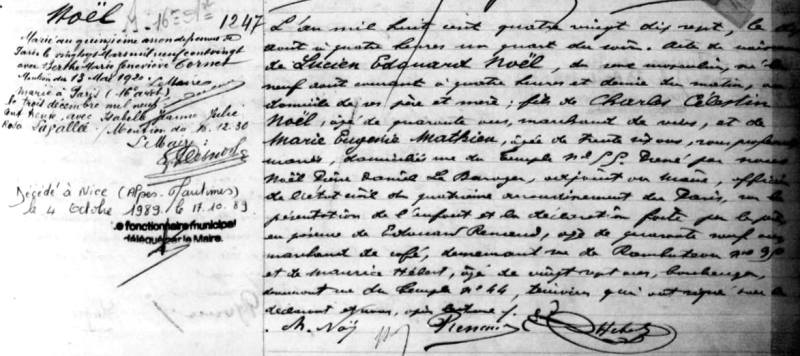 Noël
16e
1247
Marié au quinzième arrondissement de
Paris le vingt mars mil neuf cent vingt
avec Berthe Marie Geneviève Cornet
Mention du 13 Mars 1920.
Le Maire
marié à Paris (16e arrt)
le trois décembre mil neuf
cent trente, avec Isabelle Jeanne Julie
Rosa Mention du 12.30
Le Maire
Décédé à Nice (Alpes-Maritimes)
le 4 Octobre 1989. le 17.10.89
Le fonctionnaire municipal
délégué par le Maire.
L'an mil huit cent quatre vingt dix sept, le
août à quatre heures un quart du soir. Acte de naissance
de Lucien Edouard Noël, du sexe masculin, né le
neuf août courant à quatre heures et demie du matin, au
domicile de ses père et mère; fils de Charles Célestin
Noël, âgé de quarante ans, marchand de vins, et de
Marie Eugénie Mathieu, âgée de trente ans, sans profession
mariés, domiciliés rue du Temple no 55. Dressé par nous
Noël Pierre Daniel Le Barazer, adjoint au maire, officier
de l'état civil du quatrième arrondissement de Paris, sur la
présentation de l'enfant et la déclaration faite par le père
en présence de Edouard âgé de quarante neuf ans
marchand de café, demeurant rue de Rambuteau no
et de Maurice Hébert, âgé de vingt sept ans, boulanger,
demeurant rue du Temple no 44, témoins qui ont signé avec le
déclarant et nous, après lecture.
Noël Hébert